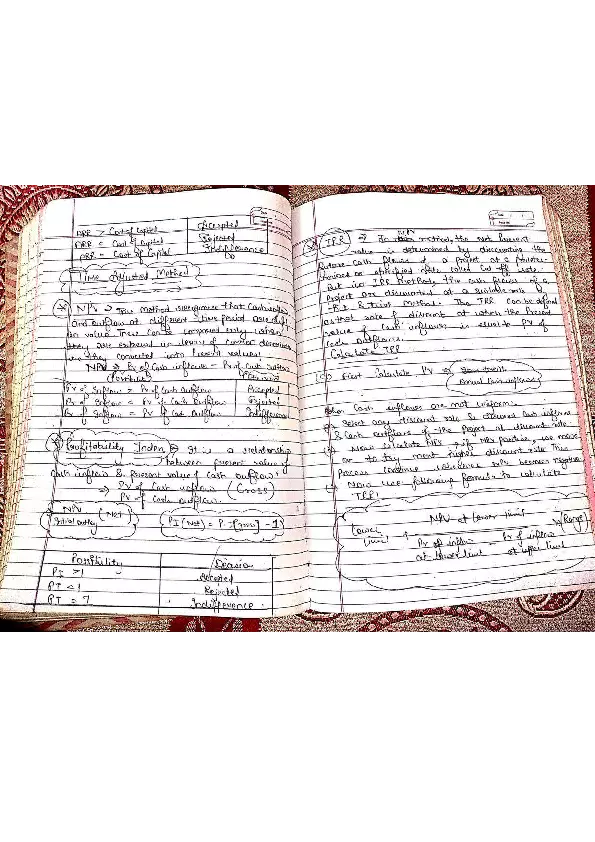 ARR > Cost of Capital Accepted
ARR < Cost of Capital Rejected
ARR = Cost of Capital Indifference
Do
Time Adjusted Method
NPV → This Method recognise that Cash inflow
and outflow at different time period are diff.
in value. These can be compared only when
they are in terms of common
i.e. they converted into Present values!
NPV → Pv of Cash inflows - Pv of Cash outflow
Pv of Inflow > Pv of Cash Outflow Accepted
Pv of Inflow < Pv of Cash Outflow Rejected
Pv of Inflow = Pv of Cash Outflow Indifference
Profitability Index → It is a relationship
between present value of
Cash inflow & Present value of Cash outflow!
→ Pv of Cash inflow (Gross)
Pv of Cash outflow.
→ NPV (Net)
Initial outlay
PI (Net) = P.I (Gross) - 1
Possibility Decision
PI > 1 Accepted
PI < 1 Rejected
PI = 1 Indifference
IRR → In NPV method, the net Present
value is determined by discounting the
future cash flows of a project at a
or specified rate called cut off rate.
But in IRR Method, the cash flows of a
Project are discounted at a suitable rate by
Hit & Trial Method. The IRR can be defined
as that rate of discount at which the Present
value of Cash inflows is equal to PV of
Cash outflows.
Calculate IRR
First Calculate PV →
Annual Cash inflows
When Cash inflows are not uniform:-
Select any discount rate & discount Cash inflows
& Cash outflows of the Project at discount rate
Now calculate NPV, if NPV positive, we move
on to try next higher discount rate. This
Process continue until the NPV becomes negative
Now use following formula to calculate
IRR!
Lower limit + NPV at lower limit × (Range)
Pv of inflow at lower limit - Pv of inflow at upper limit